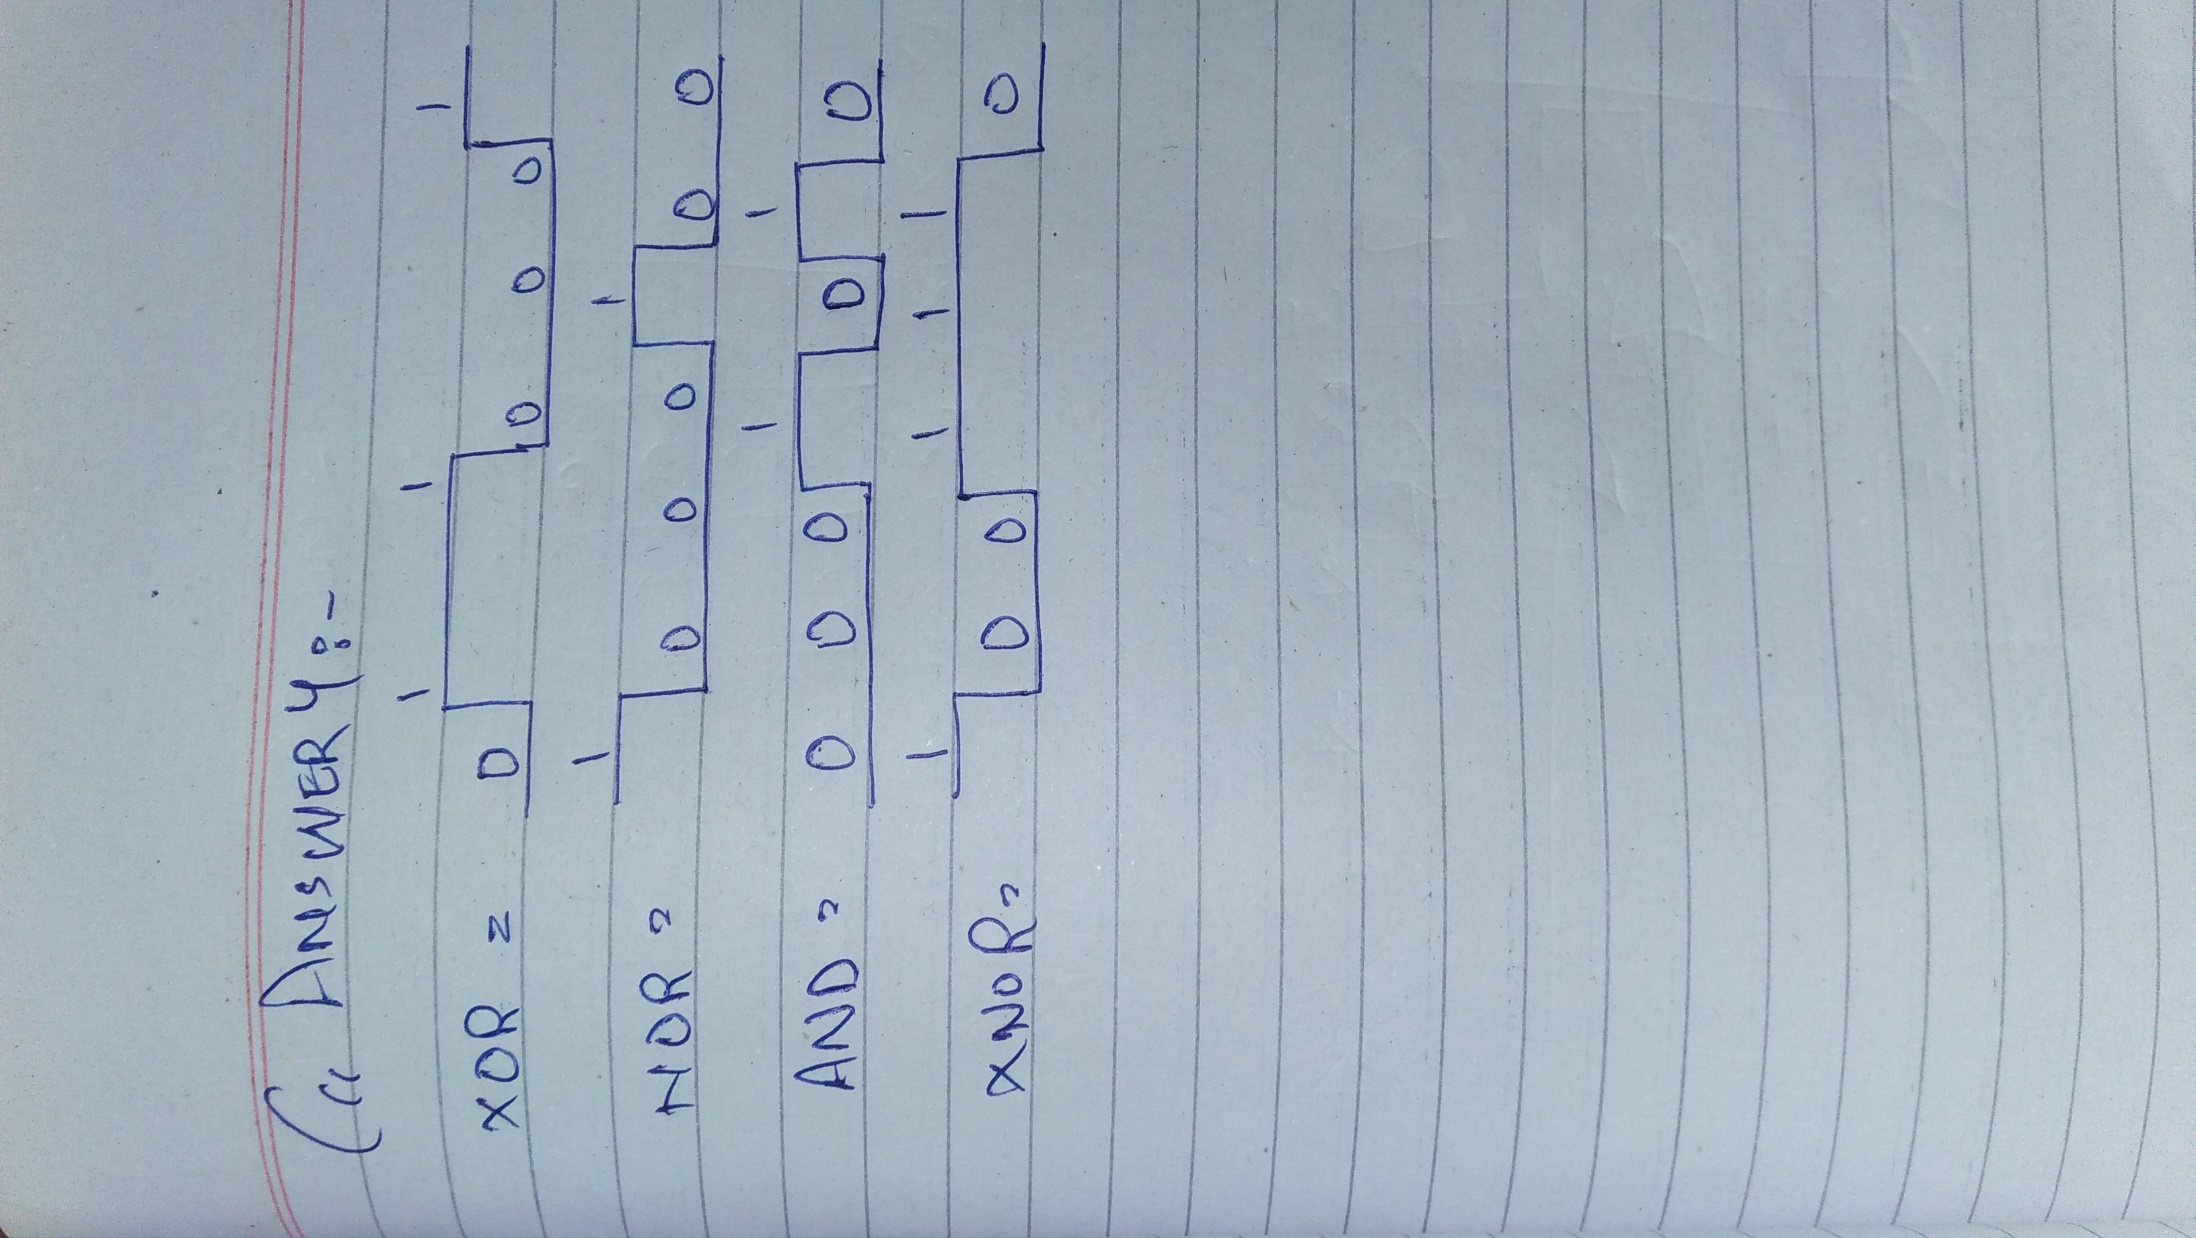 (" ANSWER 4:-
XOR = 0 1 1 0 0 0 1
NOR = 1 0 0 0 1 0 0
AND = 0 0 0 1 0 1 0
XNOR = 1 0 0 1 1 1 0